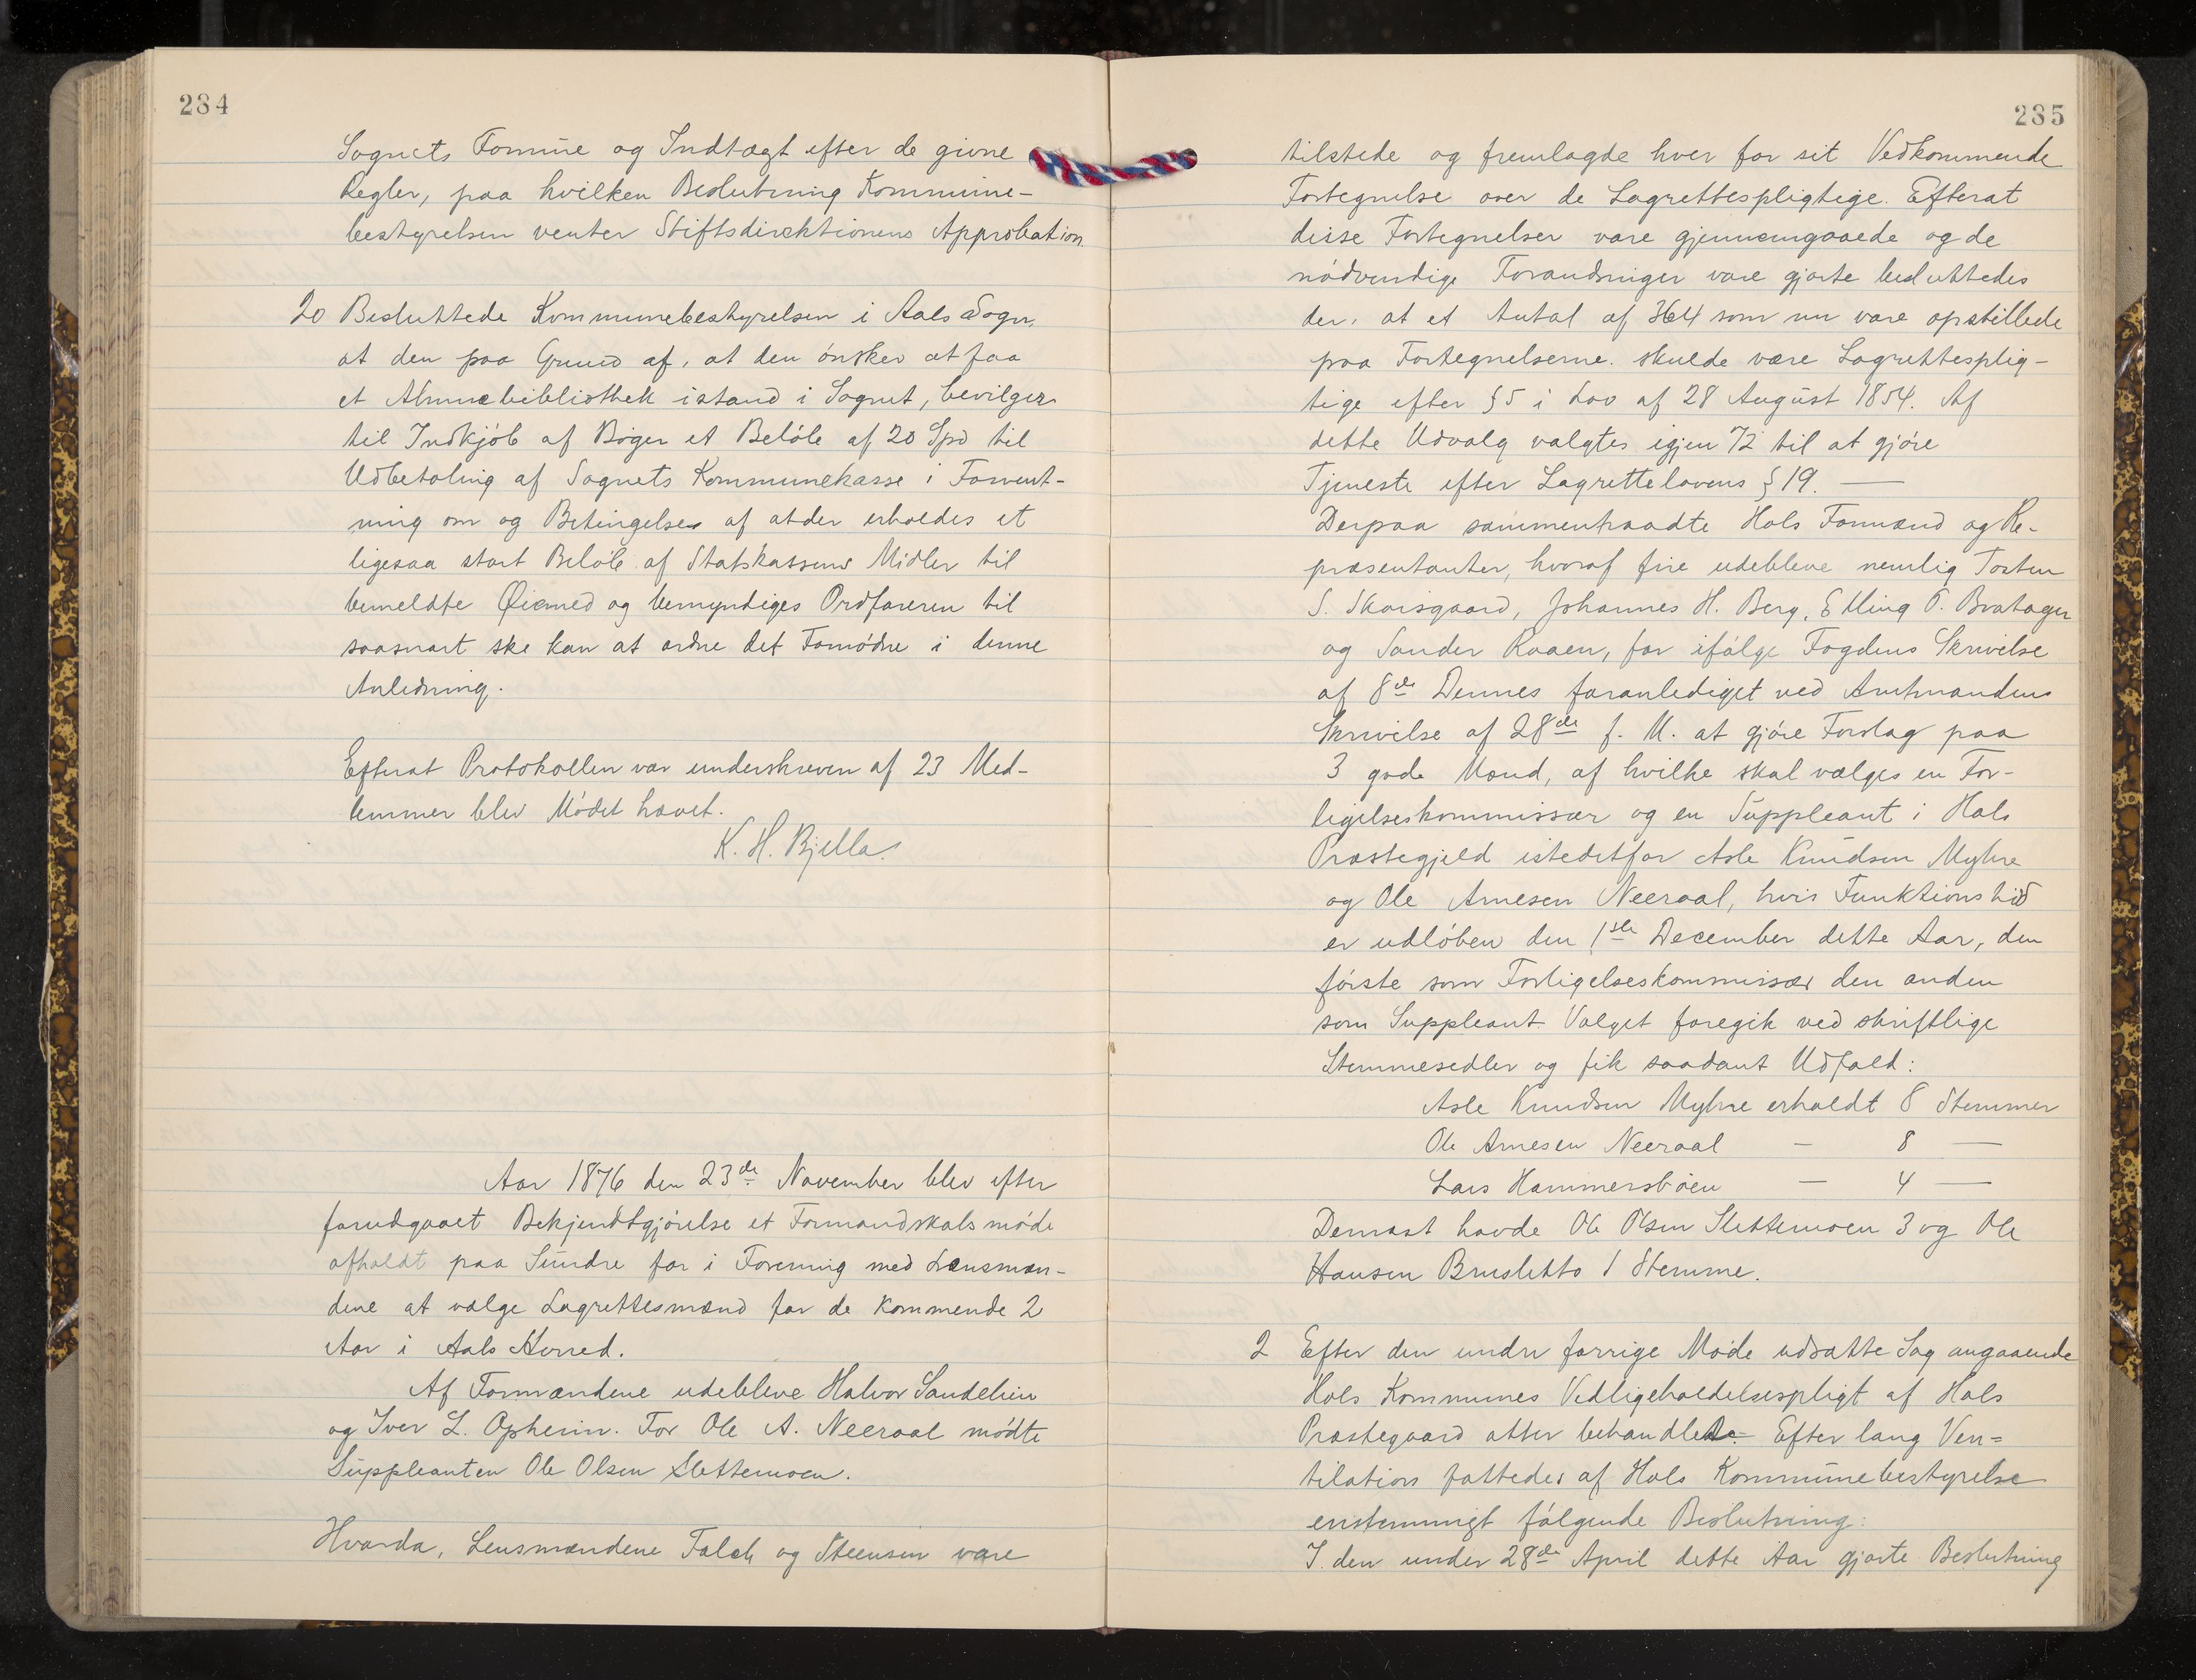 284
Sognets Formue og Indtægt efter de givne
Regler, paa hvilken Beslutning Kommune-
bestyrelsen venter Stiftsdirektionens Approbation.
20 Besluttede Kommunebestyrelsen i Aals Sogn,
at den paa Grund af, at den ønsker at faa
et Almuebibliothek istand i Sognet, bevilger
til Indkjøb af Bøger et Beløb af 20 Spd til
Udbetaling af Sognets Kommunekasse i Forvent-
ning om og Betingelse af at der erholdes et
ligesaa stort Beløb af Statskassens Midler til
bemeldte Øiemed og bemyndiges Ordføreren til
saasnart ske kan at ordne det Fornødne i denne
Anledning.
Efterat Protokollen var underskreven af 23 Med-
lemmer blev Mødet hævet.
K. H. Bjella.
Aar 1876 den 23de November blev efter
forudgaaet Bekjendtgjørelse et Formandskabsmøde
afholdt paa Sundre for i Forening med Lensmæn-
dene at vælge Lagrettesmænd for de kommende 2
Aar i Aals Herred.
Af Formændene udebleve Halvor Sandehien
og Iver L. Opheim. For Ole A. Neeraal mødte
Suppleanten Ole Olsen Slettemoen.
Hvorda, Lensmændene Falch og Steensen vare
285
tilstede og fremlagde hver for sit Vedkommende
Fortegnelse over de Lagrettespligtige. Efterat
disse Fortegnelser vare gjennemgaaede og de
nødvendige Forandringer vare gjorte besluttedes
der, at et Antal af 364 som nu vare opstillede
paa Fortegnelserne, skulde være Lagrettesplig-
tige efter § 5 i Lov af 28 August 1854. Af
dette Udvalg valgtes igjen 72 til at gjøre
Tjeneste efter Lagrettelovens § 19. —
Derpaa sammentraadte Hols Formænd og Re-
præsentanter, hvoraf fire udebleve nemlig Tosten
S. Skarsgaard, Johannes H. Berg, Elling O. Bratager
og Sander Raaen, for ifølge Fogdens Skrivelse
af 8de Dennes foranlediget ved Amtmandens
Skrivelse af 28de f. M. at gjøre Forslag paa
3 gode Mænd, af hvilke skal vælges en For-
ligelseskommissær og en Suppleant i Hols
Præstegjeld istedetfor Asle Knudsen Myhre
og Ole Arnesen Neeraal, hvis Funktionstid
er udløben den 1ste December dette Aar, den
første som Forligelseskommissær den anden
som Suppleant Valget foregik ved skriftlige
Stemmesedler og fik saadant Udfald:
Asle Knudsen Myhre erholdt 8 Stemmer
Ole Arnesen Neeraal — 8 —
Lars Hammersbøen — 4 —
Dernæst havde Ole Olsen Slettemoen 3 og Ole
Hansen Brusletto 1 Stemme.
2 Efter den under forrige Møde udsatte Sag angaaende
Hols Kommunes Vedligeholdelsespligt af Hols
Præstegaard atter behandlede. Efter lang Ven=
tilation fattedes af Hols Kommunebestyrelse
enstemmigt følgende Beslutning:
I den under 28de April dette Aar gjorte Beslutning